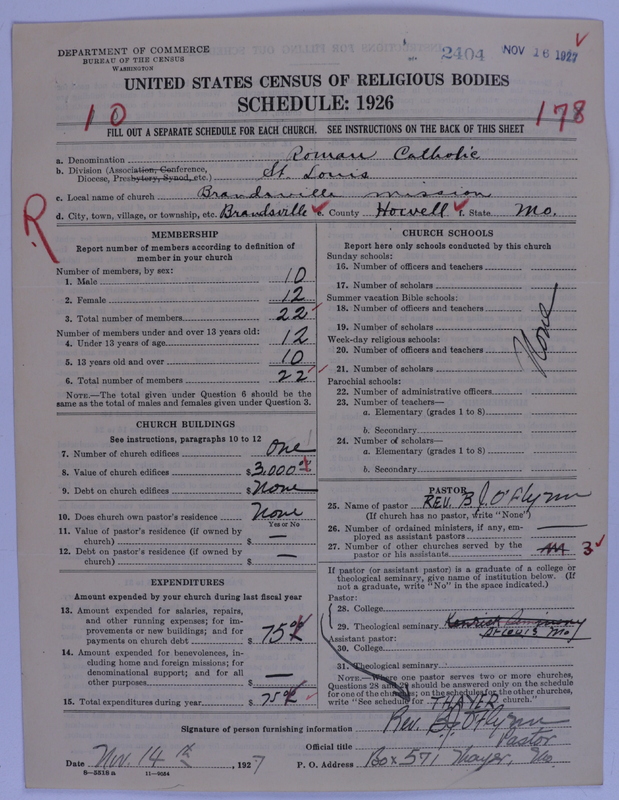 DEPARTMENT OF COMMERCE
BUREAU OF THE CENSUS
WASHINGTON
2404
NOV 16 1927
UNITED STATES CENSUS OF RELIGIOUS BODIES
SCHEDULE: 1926
10
178
FILL OUT A SEPARATE SCHEDULE FOR EACH CHURCH. SEE INSTRUCTIONS ON THE BACK OF THIS SHEET
a. Denomination Roman Catholic
b. Division (Association, Conference, Diocese, Presbytery, Synod, etc.) St. Louis
c. Local name of church Brandsville mission
d. City, town, village, or township, etc. Brandsville e. County Howell f. State Mo.
R
MEMBERSHIP
Report number of members according to definition of
member in your church
Number of members, by sex:
1. Male 10
2. Female 12
3. Total number of members 22
Number of members under and over 13 years old:
4. Under 13 years of age 12
5. 13 years old and over 10
6. Total number of members 22
NOTE.—The total given under Question 6 should be
the same as the total of males and females given under Question 3.
CHURCH BUILDINGS
See instructions, paragraphs 10 to 12
7. Number of church edifices One
8. Value of church edifices $3,000
9. Debt on church edifices $None
10. Does church own pastor's residence None
Yes or No
11. Value of pastor's residence (if owned by
church) $ —
12. Debt on pastor's residence (if owned by
church) $ —
EXPENDITURES
Amount expended by your church during last fiscal year
13. Amount expended for salaries, repairs,
and other running expenses; for im-
provements or new buildings; and for
payments on church debt $75
14. Amount expended for benevolences, in-
cluding home and foreign missions; for
denominational support; and for all
other purposes $ —
15. Total expenditures during year $75
CHURCH SCHOOLS
Report here only schools conducted by this church
Sunday schools:
16. Number of officers and teachers
17. Number of scholars
Summer vacation Bible schools:
18. Number of officers and teachers
19. Number of scholars
Week-day religious schools:
20. Number of officers and teachers
21. Number of scholars
None
Parochial schools:
22. Number of administrative officers
23. Number of teachers—
a. Elementary (grades 1 to 8)
b. Secondary
24. Number of scholars—
a. Elementary (grades 1 to 8)
b. Secondary
PASTOR
25. Name of pastor REV. B J. O'Flynn
(If church has no pastor, write "None")
26. Number of ordained ministers, if any, em-
ployed as assistant pastors —
27. Number of other churches served by the
pastor or his assistants 3
If pastor (or assistant pastor) is a graduate of a college or
theological seminary, give name of institution below. (If
not a graduate, write "No" in the space indicated.)
Pastor:
28. College
29. Theological seminary Kenrick Seminary
St Louis Mo
Assistant pastor:
30. College
31. Theological seminary
NOTE.—Where one pastor serves two or more churches,
Questions 28 and 29 should be answered only on the schedule
for one of the churches; on the schedules for the other churches,
write "See schedule for THAYER church."
Signature of person furnishing information Rev. B. J. O'Flynn
Official title Pastor
Date Nov. 14th, 1927 P. O. Address Box 571 Thayer, Mo.
8—5518 a 11—9034